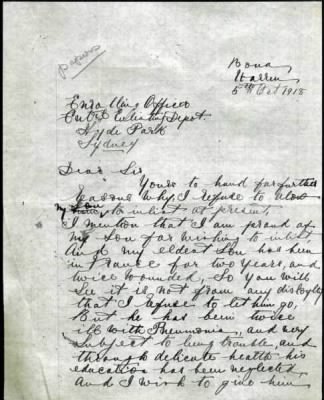 papers
Bona
Warren
5th Oct 1918
Enrolling Officer
Central Enlistm't Depot
Hyde Park
Sydney
Dear Sir
Yours to hand for further
reasons why I refuse to allow
my son to inlist at present,
I mention that I am proud of
my Son for wishing to inlist,
and my eldest Son has been
in France for two years, and
twice wounded, So you will
see it is not from any disloyalty
that I refuse to let him go,
But he has been twice
ill with Pneumonia, and very
subject to lung trouble, and
through delicate health his
education has been neglected
And I wish to give him